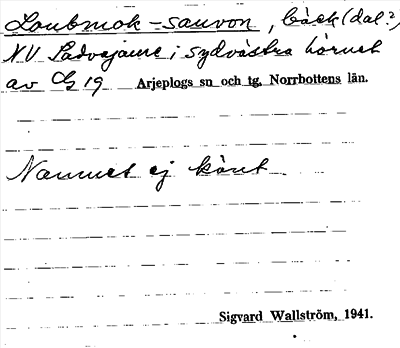 Loubmok-sauvon, bäck (dal?)
NV Sadvajaure i sydvästra hörnet
av G 19 Arjeplogs sn och tg, Norrbottens län.
Namnet ej känt
Sigvard Wallström, 1941.